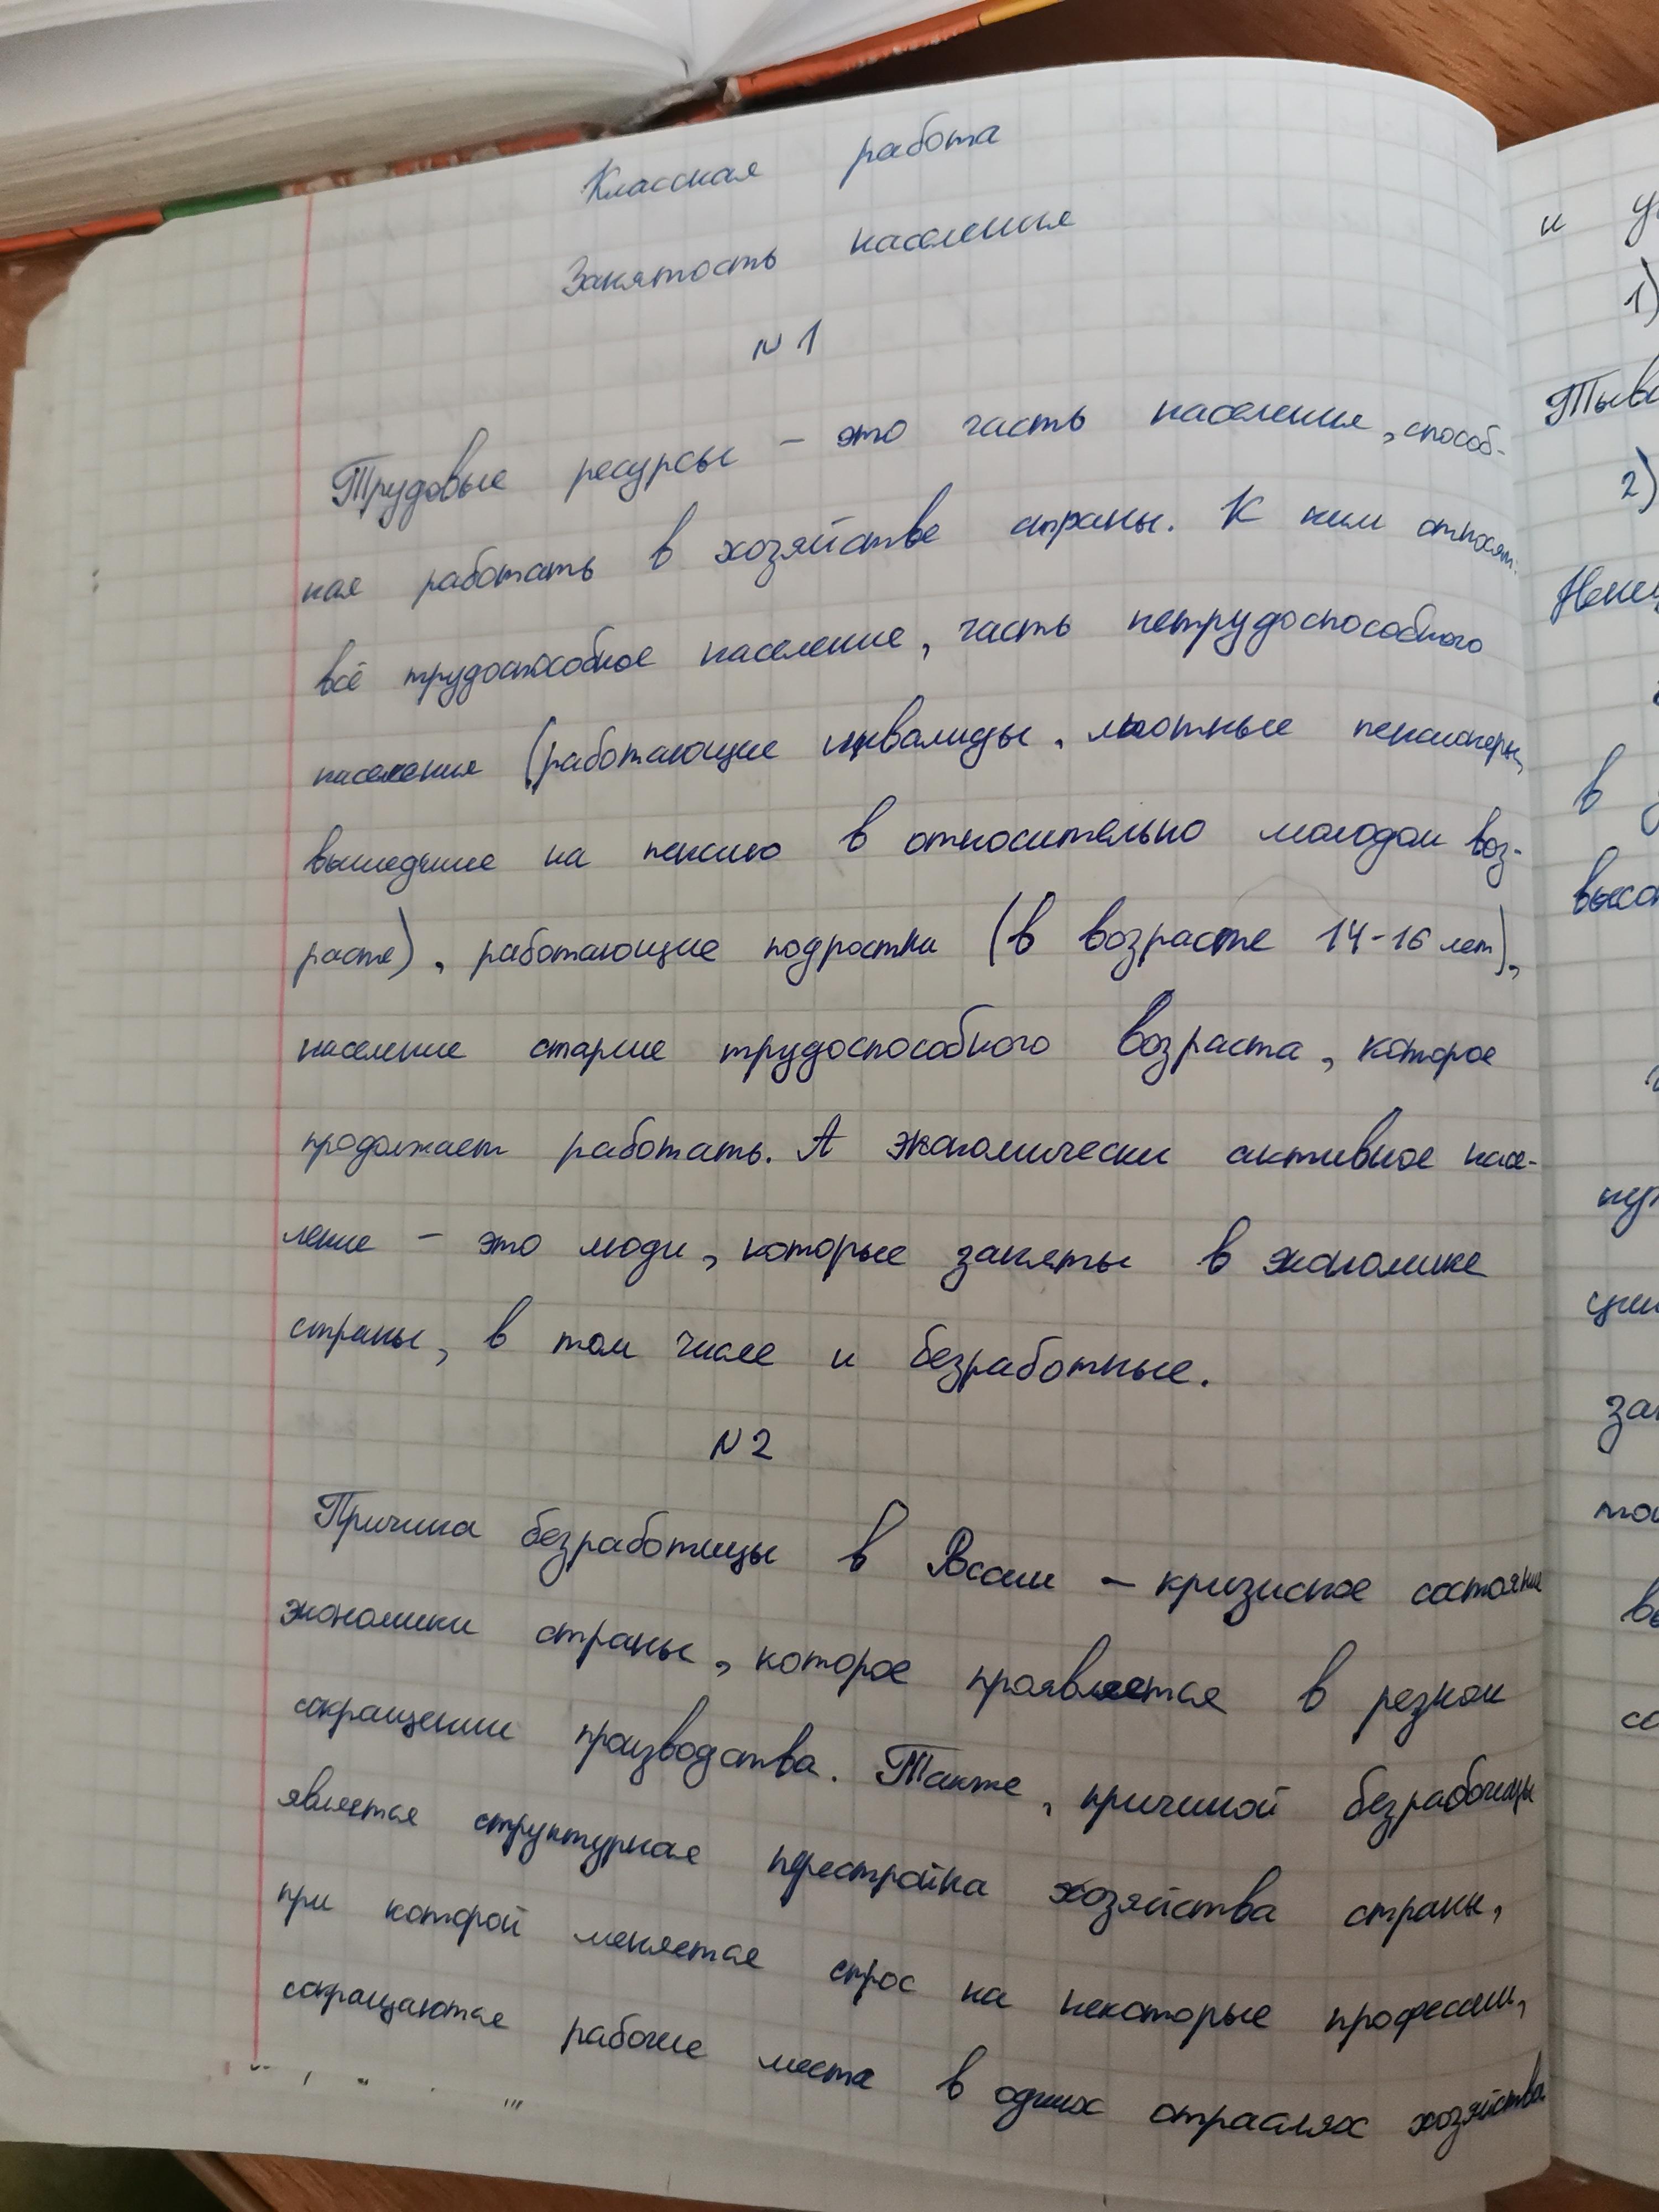 Классная работа
Занятость населения
N 1
Трудовые ресурсы – это часть населения, способ-
ная работать в хозяйстве страны. К ним относят:
всё трудоспособное население, часть нетрудоспособного
населения (работающие инвалиды, льготные пенсионеры,
вышедшие на пенсию в относительно молодом воз-
расте), работающие подростки (в возрасте 14-16 лет),
население старше трудоспособного возраста, которое
продолжает работать. А экономически активное насе-
ление – это люди, которые заняты в экономике
страны, в том числе и безработные.
N 2
Причина безработицы в России – кризисное состояние
экономики страны, которое проявляется в резком
сокращении производства. Также, причиной безработицы
является структурная перестройка хозяйства страны,
при которой меняется спрос на некоторые профессии,
сокращаются рабочие места в одних отраслях хозяйства
и
1)
2)
в